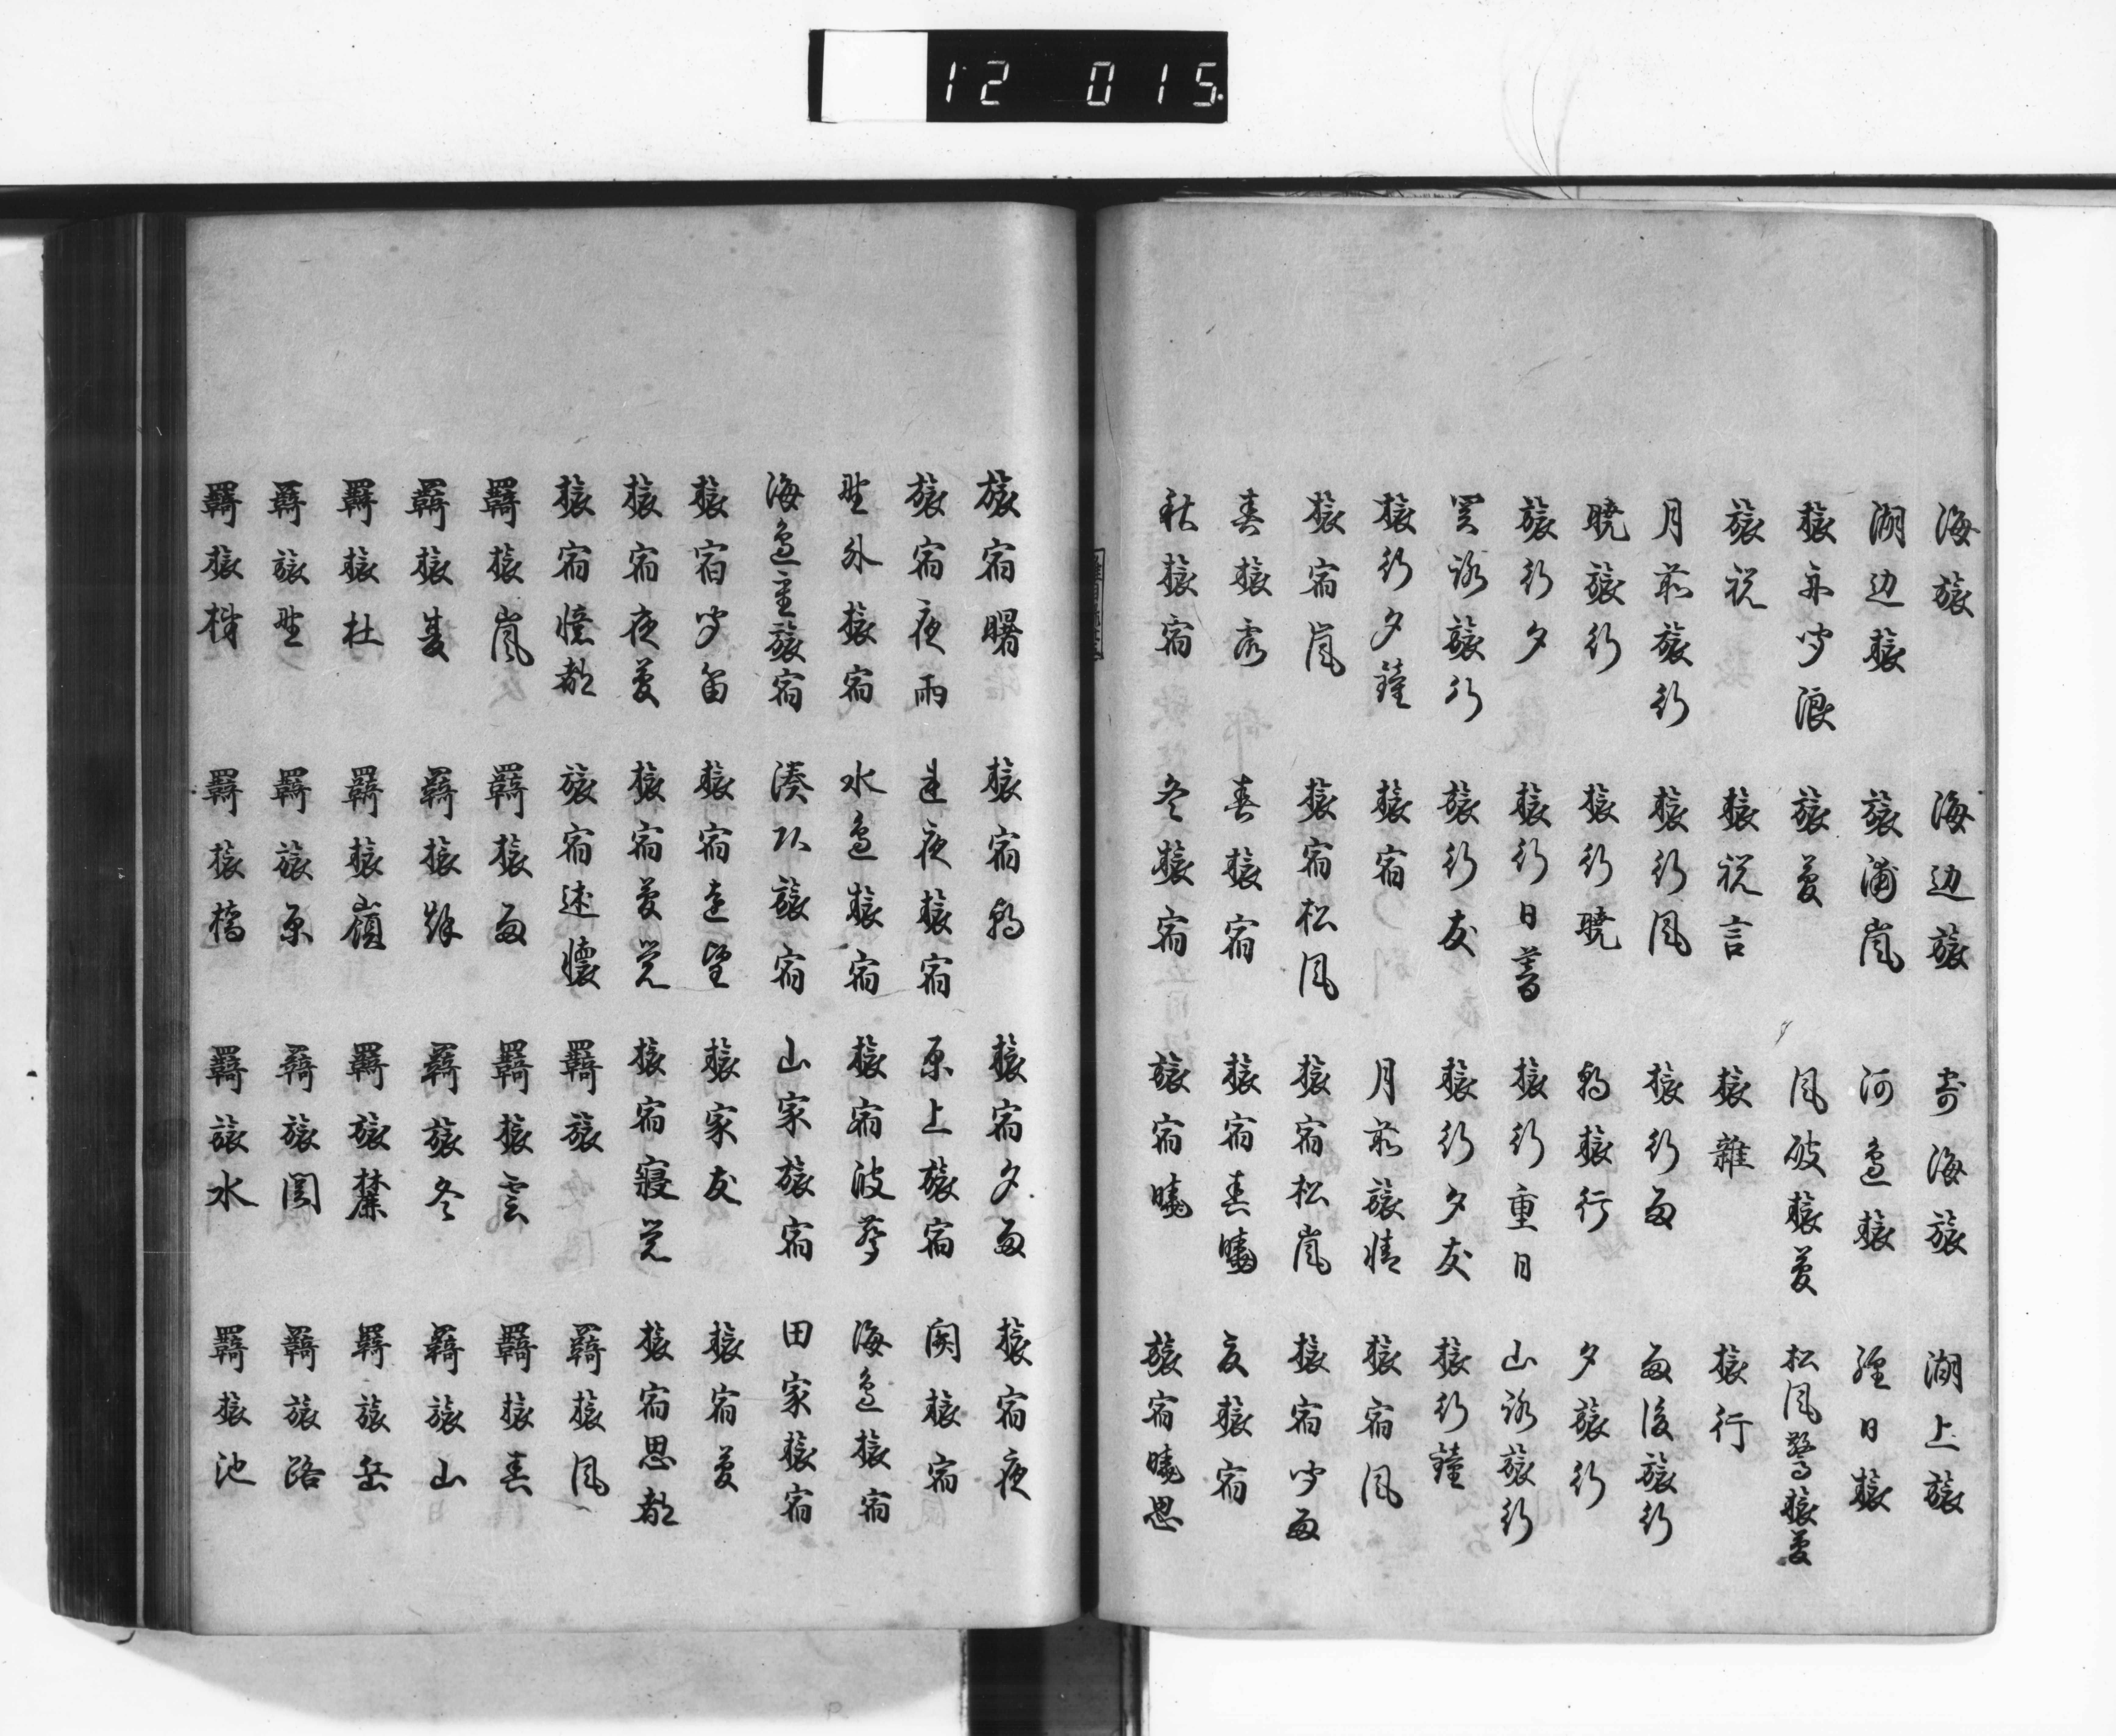 12 015
海旅 海辺旅 寄海旅 湖上旅
湖辺旅 旅浦嵐 河邊旅 経日旅
旅亦聞浪 旅夢 風破旅夢 松風驚旅夢
旅祝 旅祝言 旅雑 旅行
月前旅行 旅行風 旅行雨 雨後旅行
暁旅行 旅行暁 朝旅行 夕旅行
旅行夕 旅行日暮 旅行重日 山路旅行
関路旅行 旅行友 旅行夕友 旅行鐘
旅行夕鐘 旅宿 月前旅情 旅宿風
旅宿嵐 旅宿松風 旅宿松嵐 旅宿聞雨
春旅 春旅宿 旅宿春曙 夏旅宿
秋旅宿 冬旅宿 旅宿曉 旅宿曉思
旅宿曙 旅宿朝 旅宿夕雨 旅宿夜
旅宿夜雨 連夜旅宿 原上旅宿 関旅宿
野外旅宿 水邊旅宿 旅宿波 海邊旅宿
海邊重旅宿 湊頭旅宿 山家旅宿 田家旅宿
旅宿聞笛 旅宿遠望 旅家友 旅宿夢
旅宿夜夢 旅宿夢覚 旅宿寝覚 旅宿思都
旅宿憶都 旅宿述懐 羇旅 羇旅風
羇旅嵐 羇旅雨 羇旅雲 羇旅春
羇旅夏 羇旅秋 羇旅冬 羇旅山
羇旅杜 羇旅嶺 羇旅麓 羇旅岳
羇旅野 羇旅原 羇旅関 羇旅路
羇旅村 羇旅橋 羇旅水 羇旅池